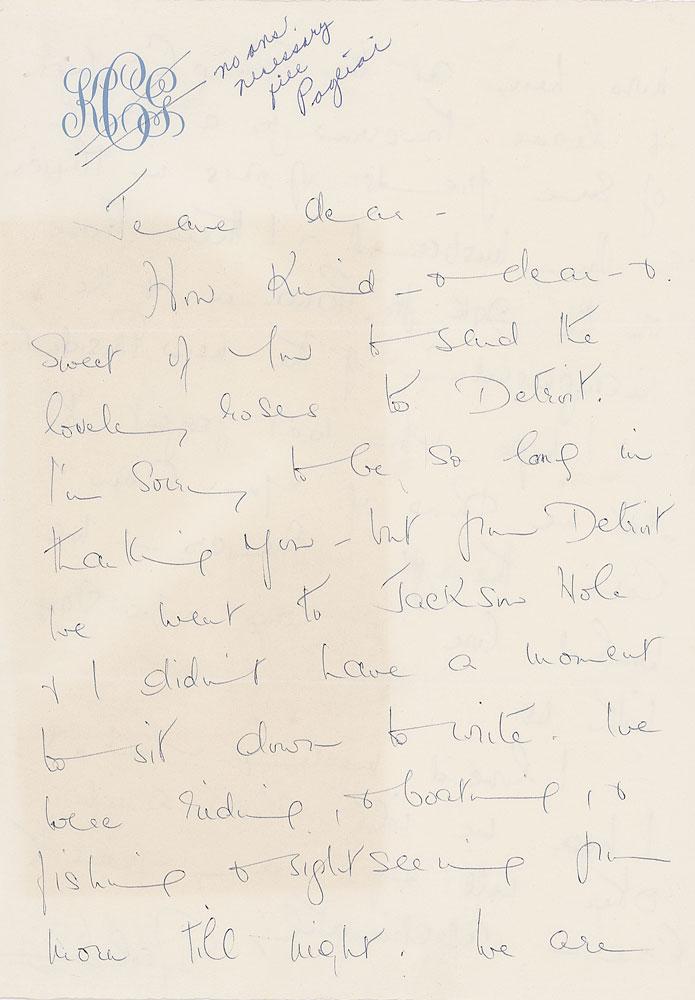 KCG
no ans.
necessary
file
Pagliai
Jeane dear -
How Kind - & dear - &
Sweet of you to send the
lovely roses to Detroit.
I'm Sorry to be so long in
thanking you - but from Detroit
we went to Jackson Hole
& I didn't have a moment
to sit down to write. We
were riding, & boating, &
fishing & sightseeing from
morn till night. We are